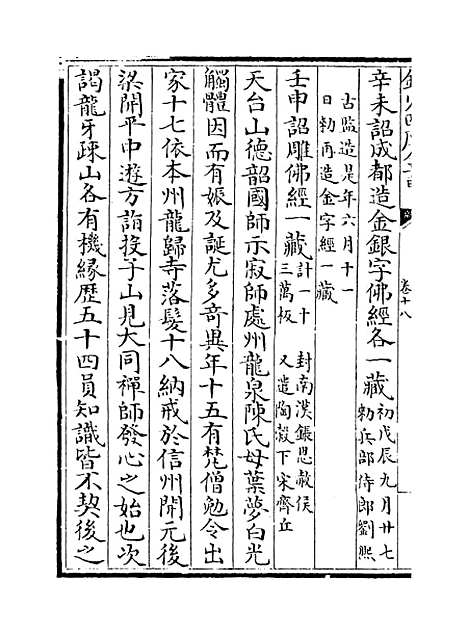 欽定四庫全書
卷十八
辛未詔成都造金銀字佛經各一藏初戊辰九月廿七
勅兵部侍郎劉熙
古監造是年六月十一
日勅再造金字經一藏
壬申詔雕佛經一藏計一十
三萬板
封南漢鋹恩赦侯
又遣陶穀下宋齊丘
天台山德韶國師示寂師處州龍泉陳氏母葉夢白光
觸體因而有娠及誕尤多奇異年十五有梵僧勉令出
家十七依本州龍歸寺落髮十八納戒於信州開元後
梁開平中遊方詣投子山見大同禪師發心之始也次
謁龍牙疎山各有機緣歷五十四員知識皆不契後之